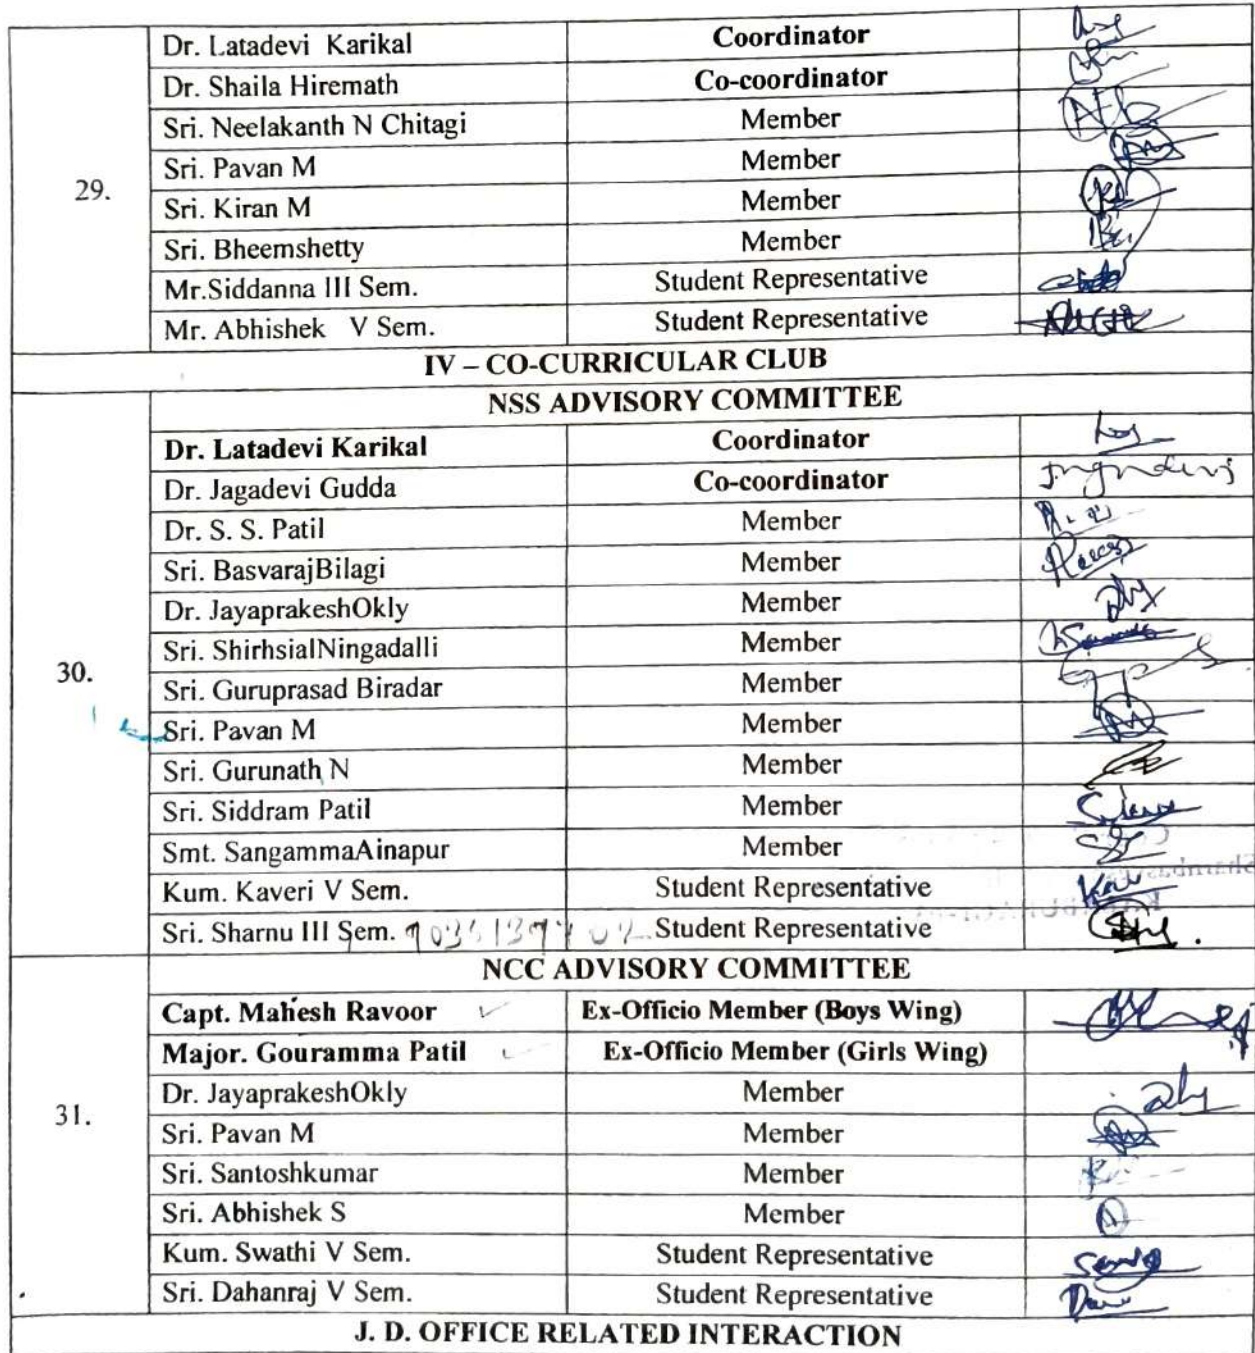 29.
Dr. Latadevi Karikal Coordinator
Dr. Shaila Hiremath Co-coordinator
Sri. Neelakanth N Chitagi Member
Sri. Pavan M Member
Sri. Kiran M Member
Sri. Bheemshetty Member
Mr.Siddanna III Sem. Student Representative
Mr. Abhishek V Sem. Student Representative
IV – CO-CURRICULAR CLUB
30.
NSS ADVISORY COMMITTEE
Dr. Latadevi Karikal Coordinator
Dr. Jagadevi Gudda Co-coordinator
Dr. S. S. Patil Member
Sri. BasvarajBilagi Member
Dr. JayaprakeshOkly Member
Sri. ShirhsialNingadalli Member
Sri. Guruprasad Biradar Member
Sri. Pavan M Member
Sri. Gurunath N Member
Sri. Siddram Patil Member
Smt. SangammaAinapur Member
Kum. Kaveri V Sem. Student Representative
Sri. Sharnu III Sem. Student Representative
31.
NCC ADVISORY COMMITTEE
Capt. Mahesh Ravoor Ex-Officio Member (Boys Wing)
Major. Gouramma Patil Ex-Officio Member (Girls Wing)
Dr. JayaprakeshOkly Member
Sri. Pavan M Member
Sri. Santoshkumar Member
Sri. Abhishek S Member
Kum. Swathi V Sem. Student Representative
Sri. Dahanraj V Sem. Student Representative
J. D. OFFICE RELATED INTERACTION